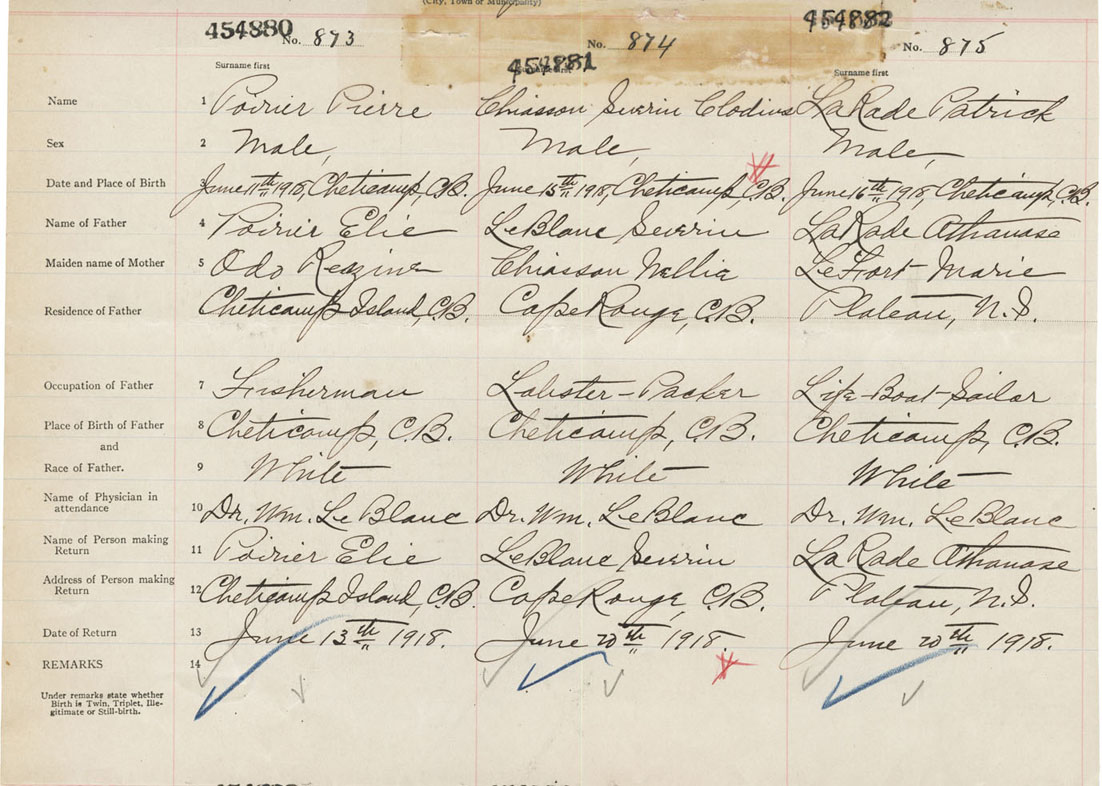 (City, Town or Municipality)
454880 No. 873
454881 No. 874
454882 No. 875
Surname first
Surname first
Surname first
Name 1 Poirier Pierre Chiasson Severin Clodius LaRade Patrick
Sex 2 Male, Male, Male,
Date and Place of Birth 3 June 11th 1918, Cheticamp, C.B. June 15th 1918, Cheticamp, C.B. June 16th 1918, Cheticamp, C.B.
Name of Father 4 Poirier Elie LeBlanc Severin LaRade Athanase
Maiden name of Mother 5 Odo Regine Chiasson Nellie LeFort Marie
Residence of Father Cheticamp Island, C.B. Cape Rouge, C.B. Plateau, N.S.
Occupation of Father 7 Fisherman Lobster-Packer Life-Boat-Sailor
Place of Birth of Father 8 Cheticamp, C.B. Cheticamp, C.B. Cheticamp, C.B.
and
Race of Father. 9 White White White
Name of Physician in
attendance 10 Dr. Wm. LeBlanc Dr. Wm. LeBlanc Dr. Wm. LeBlanc
Name of Person making
Return 11 Poirier Elie LeBlanc Severin LaRade Athanase
Address of Person making
Return 12 Cheticamp Island, C.B. Cape Rouge, C.B. Plateau, N.S.
Date of Return 13 June 13th 1918. June 20th 1918. June 20th 1918.
REMARKS 14
Under remarks state whether
Birth is Twin, Triplet, Ille-
gitimate or Still-birth.